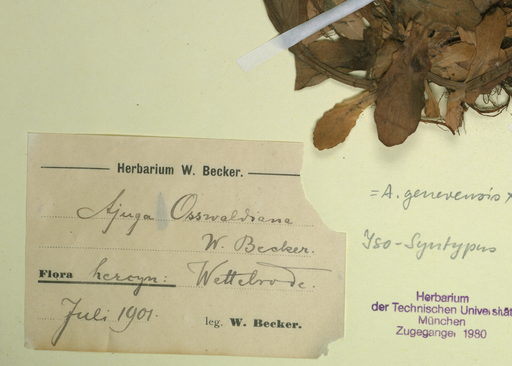 Herbarium W. Becker.
Ajuga Osswaldiana
W. Becker.
Flora hercyn: Wettelrode.
Juli 1901.
leg. W. Becker.
= A. genevensis ×
Iso-Syntypus
Herbarium
der Technischen Universität
München
Zugegangen 1980